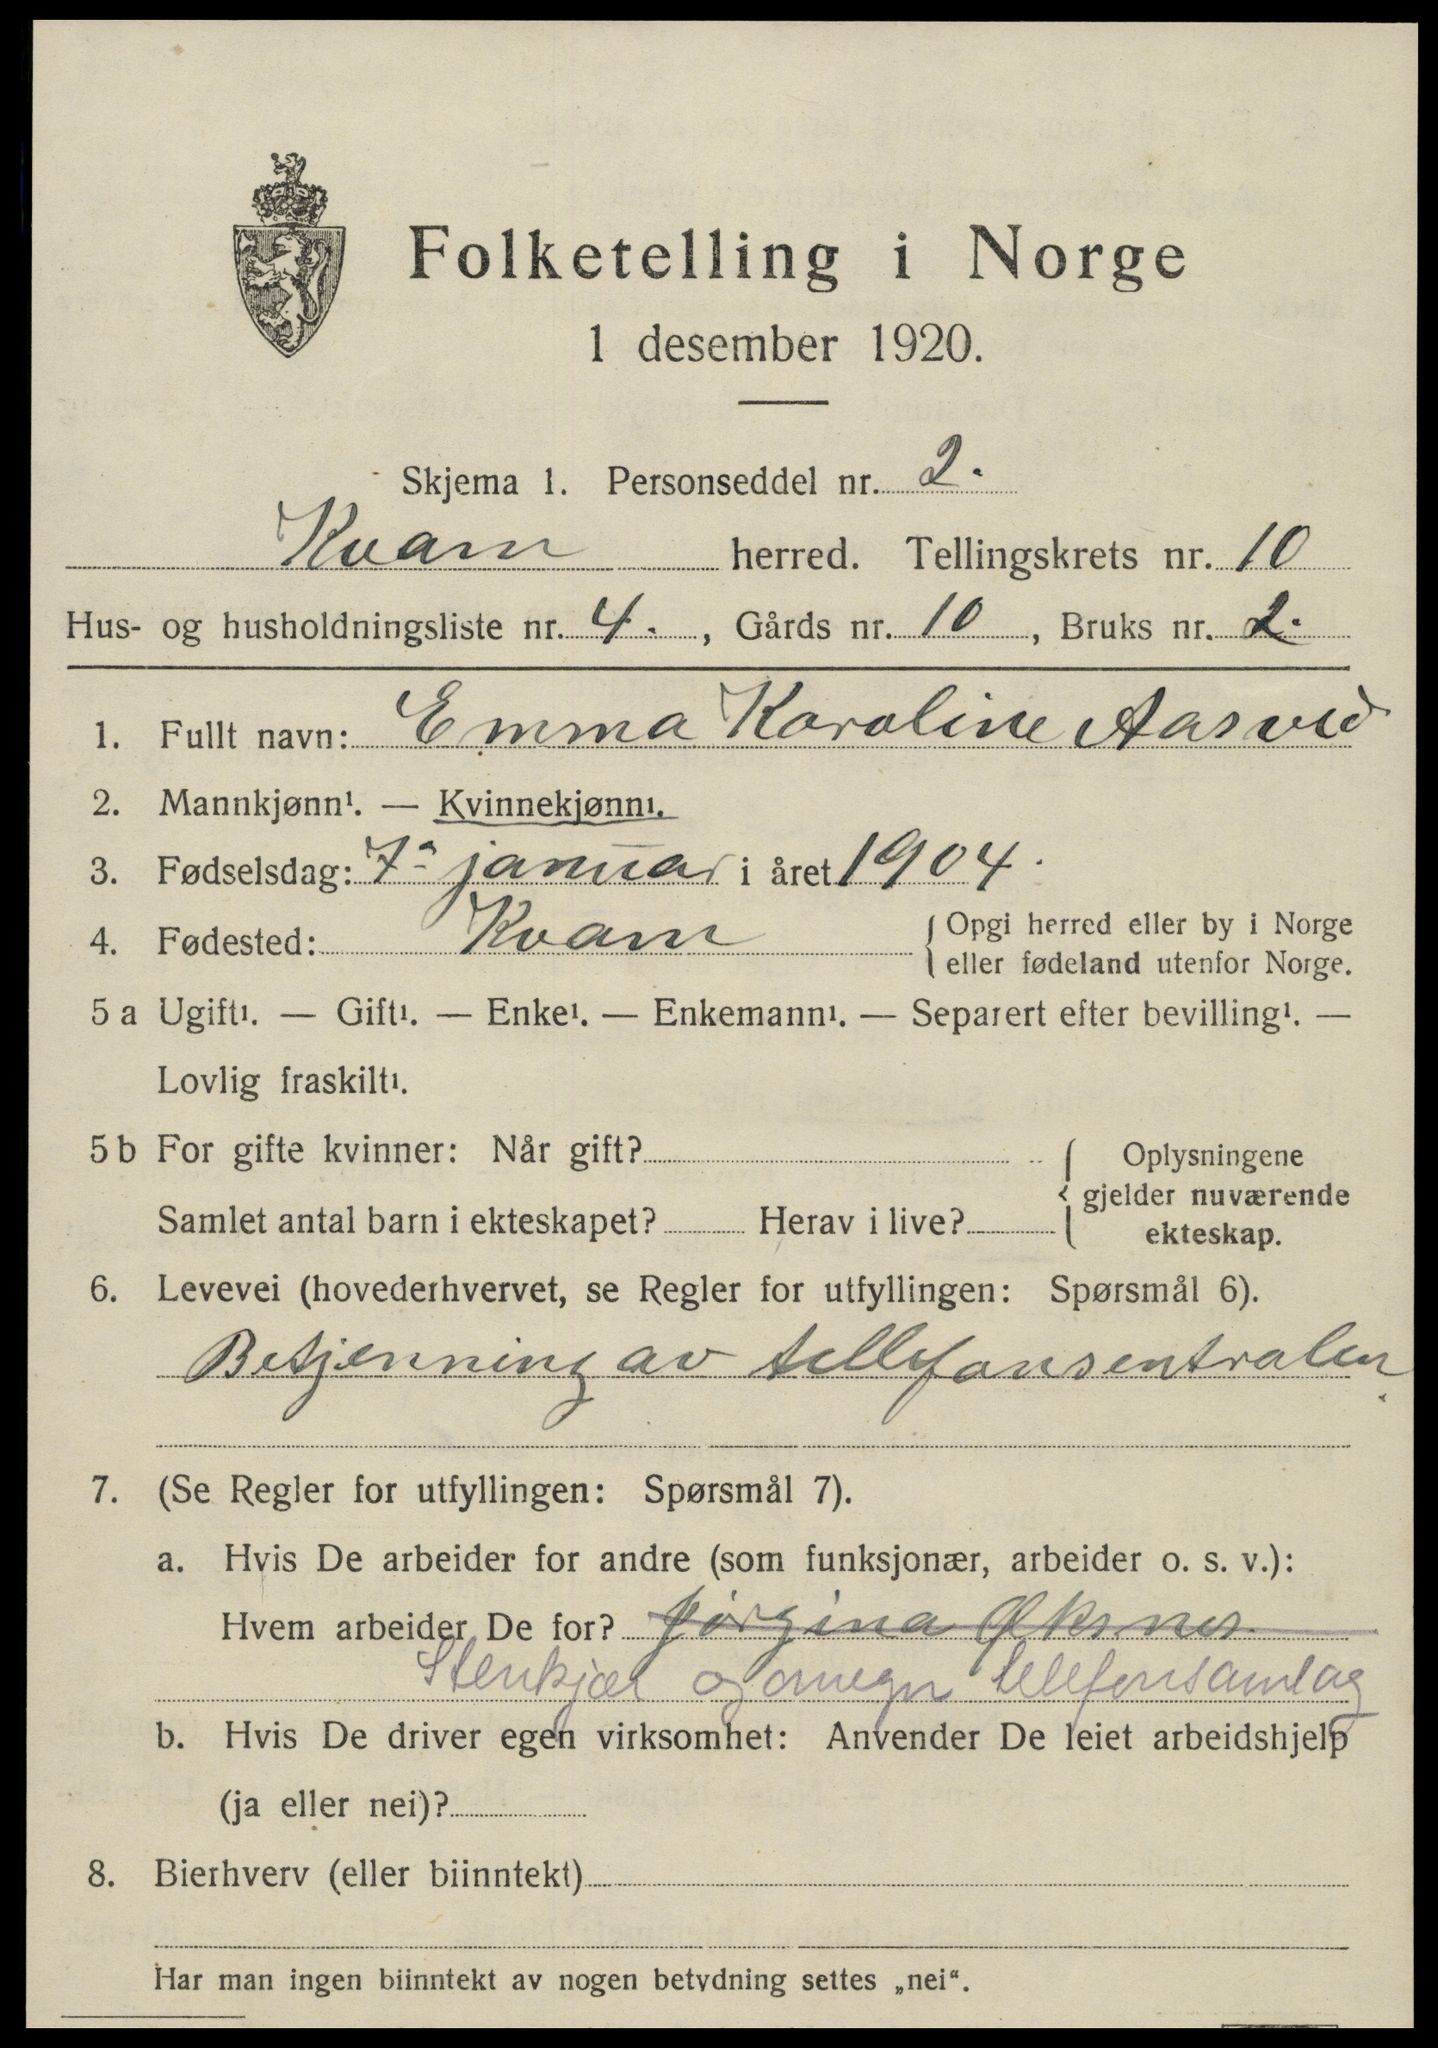 Folketelling i Norge
1 desember 1920.
Skjema 1. Personseddel nr. 2.
Kvam herred. Tellingskrets nr. 10
Hus- og husholdningsliste nr. 4. , Gårds nr. 10 , Bruks nr. 2.
1. Fullt navn: Emma Karoline Aasved
2. Mannkjønn¹. — Kvinnekjønn¹.
3. Fødselsdag: 7de januar i året 1904.
4. Fødested: Kvam { Opgi herred eller by i Norge
eller fødeland utenfor Norge.
5 a Ugift¹. — Gift¹. — Enke¹. — Enkemann¹. — Separert efter bevilling¹. —
Lovlig fraskilt¹.
5 b For gifte kvinner: Når gift? { Oplysningene
gjelder nuværende
ekteskap.
Samlet antal barn i ekteskapet? Herav i live?
6. Levevei (hovederhvervet, se Regler for utfyllingen: Spørsmål 6).
Betjenning av tellefonsentralen.
7. (Se Regler for utfyllingen: Spørsmål 7).
a. Hvis De arbeider for andre (som funksjonær, arbeider o. s. v.):
Hvem arbeider De for? Jørgina Øksnes
Stenkjær og omegn telefonsamlag
b. Hvis De driver egen virksomhet: Anvender De leiet arbeidshjelp
(ja eller nei)?
8. Bierhverv (eller biinntekt)
Har man ingen biinntekt av nogen betydning settes „nei“.